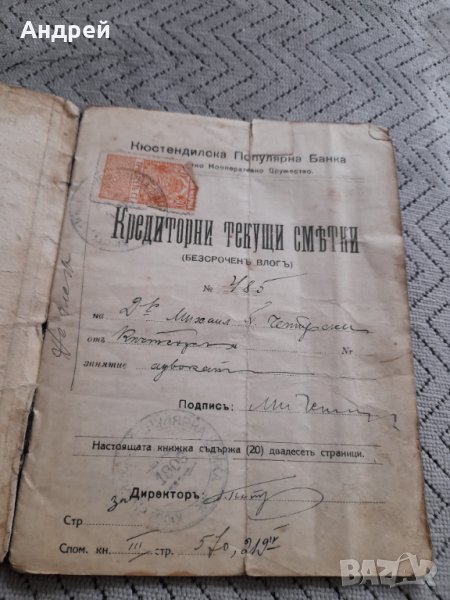 Андрей
Кюстендилска Популярна Банка
Кооперативно Дружество.
Кредиторни текущи смѣтки
(БЕЗСРОЧЕНЪ ВЛОГЪ)
№ 485
на Д-р Михаил
отъ Кюстендил №
занятие адвокат
Подпис:
Настоящата книжка съдържа (20) двадесеть страници.
1903
за Директоръ:
Стр
Спом. кн. III стр. 570, 219
BAZAR